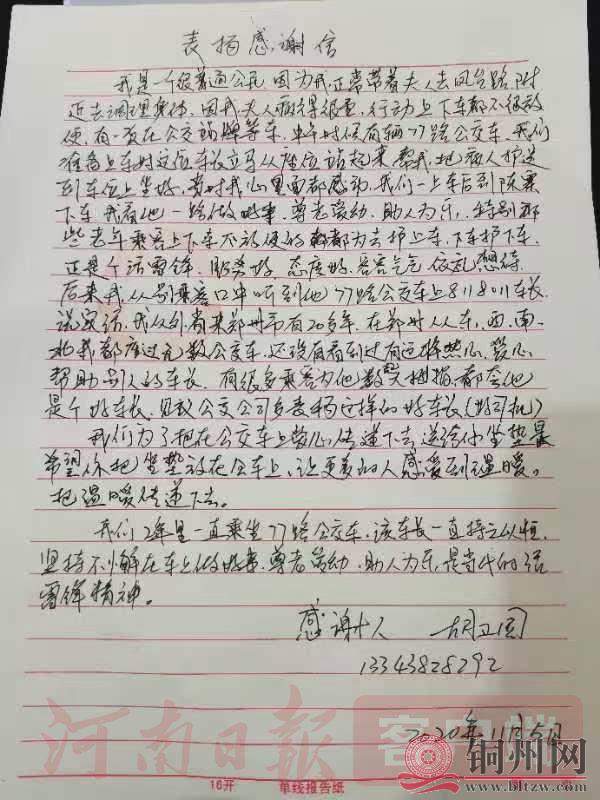 表扬感谢信
我是一个很普通公民 因为我正常带着夫人去凤台路附
近去调理身体。因我夫人病得很重，行动上下车都不很放
便。有一次在公交站牌等车。 时候有辆77路公交车。我们
准备上车时这位车长立马从座位站起来帮我把病人护送
到车位上坐好，当时我心里面都感动。我们一上车后到陈寨
下车 我看他一路做好事。尊老爱幼，助人为乐，特别那
些老年乘客上下车不放便的 都为去护上车，下车护下车。
正是个活雷锋。服务好，态度好，客客气气 待。
后来我从别乘客口中听到他77路公交车上8118011车长。
说实话，我从外省来郑州市有20多年。在郑州从东，西，南，
北我都座过无数公交车。还没有看到过有这样热心，爱心
帮助别人的车长。有很多乘客为他数大拇指，都夸他
是个好车长。见议公交公司多表杨这样的好车长（好司机）
我们为了把在公交车上爱心传递下去 送给你坐垫
希望你把坐垫放在公车上，让更多的人感爱到温暖。
把温暖传递下去。
我们2年里一直乘坐77路公交车。该车长一直持之以恒，
坚持不懈在车上做好事，尊老爱幼，助人为乐，是当代的活
雷锋精神。
感谢人 胡卫国
13343828292
2020年11月5日
河南日报 客户端
铜州网
www.bltzw.com
16开 单线报告纸